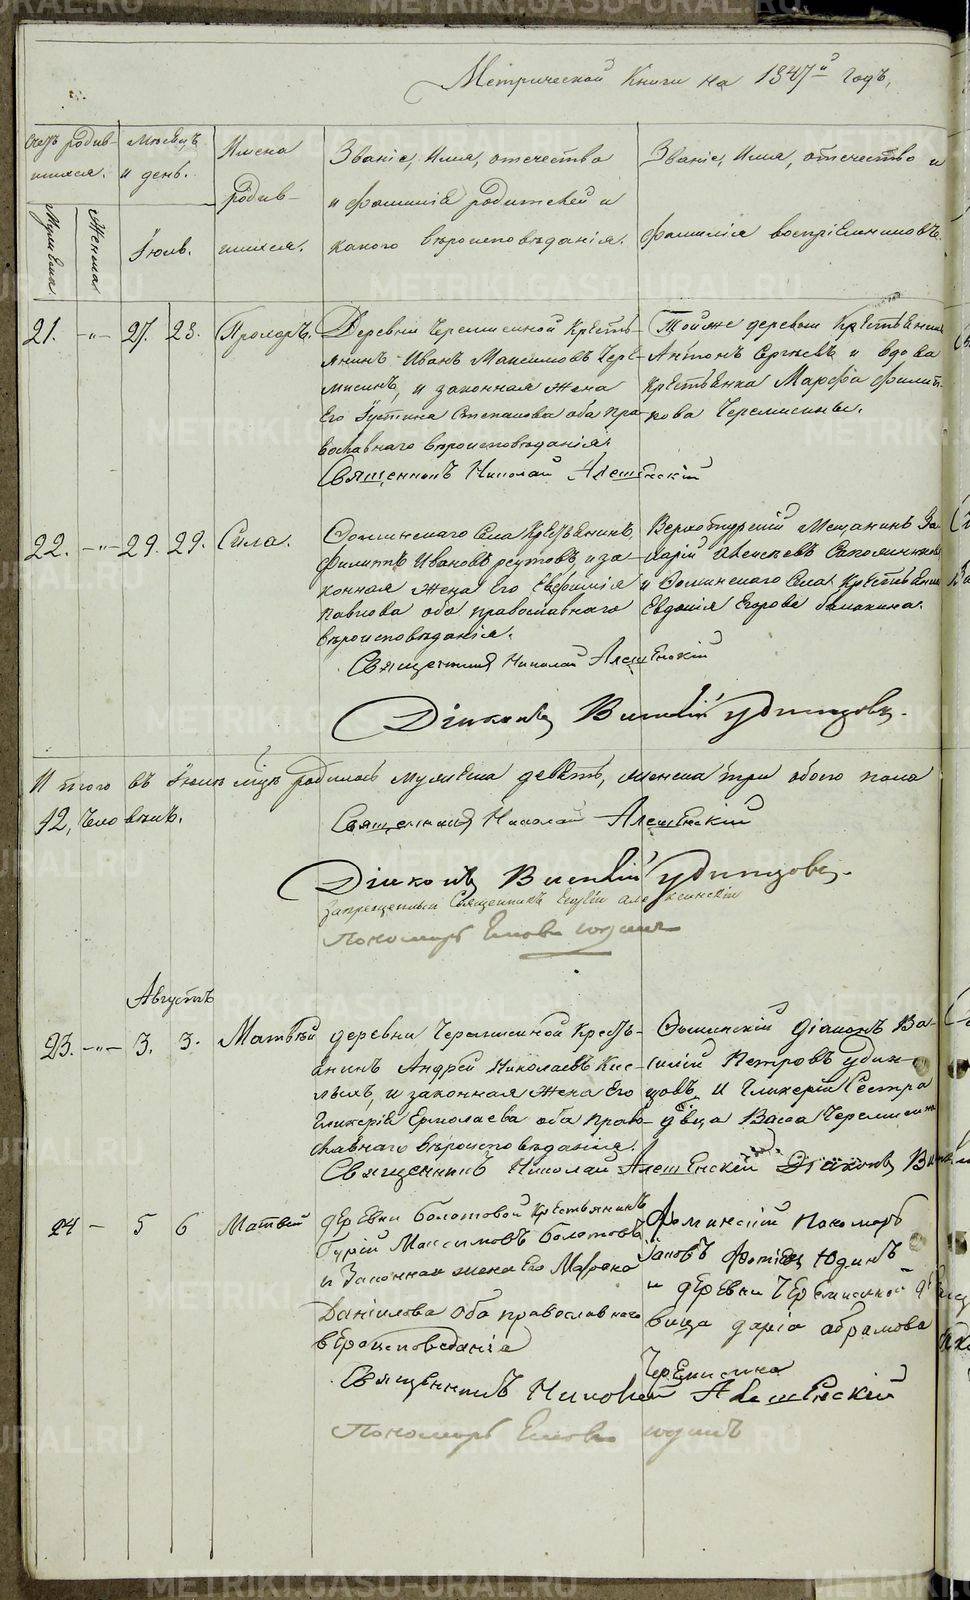 Метрической Книги на 1847й годъ,
Счетъ родив-
шихся.
Мужеска
Женска
Месяцъ
и день.
Июль.
Имена
родив-
шихся.
Званіе, Имя, отечество
и фамилія родителей и
какого вѣроисповѣданія.
Званіе, Имя, отечество и
фамилія воспріемниковъ.
21. -"- 27. 28. Прохоръ.
Деревни Черемисиной Кресть-
янинъ Иванъ Максимовъ Чере-
мисинъ, и законная жена
Его Устина Степанова оба пра-
вославнаго вѣроисповѣданія.
Священникъ Николай Алешенскій
Тойже деревни Крестьянинъ
Антонъ Сергѣевъ и вдова
Крестьянка Марфа Филип-
пова Черемисины.
22. -"- 29. 29. Сила.
Фоминскаго Села Крестьянинъ
Филипъ Ивановъ Реутовъ, и за-
конная жена Его Евфимія
Павлова оба православнаго
вѣроисповѣданія.
Священникъ Николай Алешенскій
Верхотурскій Мещанинъ За-
харій Алексѣевъ
и Фоминскаго Села Крестьянка
Евдокія Егорова
Діаконъ Василій Удинцовъ.
И того въ Іюлѣ мцѣ родилось мужеска девять, женска три обоего пола
12, человѣкъ.
Священникъ Николай Алешенскій
Діаконъ Василій Удинцовъ.
Запрещенный Священникъ
Пономарь Іаковъ Юдинъ
Августъ
23. -"- 3. 3. Матвѣй
деревни Черемисиной Кресть-
янинъ Андрей Николаевъ Кис-
лыхъ, и законная жена Его
Гликерія Ермолаева оба право-
славнаго вѣроисповѣданія.
Священникъ Николай Алешенскій Діаконъ
Фоминскій діаконъ Ва-
силій Петровъ Удин-
цовъ, И Гликеріи Сестра
дѣвца Васса Черемисина
24 - 5 6 Матвей
деревни Болотовой Крестьянинъ
Гурій Максимовъ Болотовъ
и Законная жена его Марфа
Даніилова оба православнаго
вѣроисповеданія
Священникъ Николай Алешенскій
Пономарь Іаковъ Юдинъ
Фоминскій Пономарь
Іаковъ Фотіевъ Юдинъ
и деревни Черемисиной дѣ-
вица Дарія Абрамова
Черемисина
METRIKI.GASO-URAL.RU